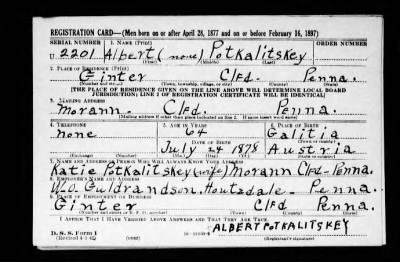 REGISTRATION CARD—(Men born on or after April 28, 1877 and on or before February 16, 1897)
SERIAL NUMBER 1. NAME (Print) ORDER NUMBER
U 2201 Albert (none) Potkalitskey
(First) (Middle) (Last)
2. PLACE OF RESIDENCE (Print)
Ginter Clfd. Penna.
(Number and street) (Town, township, village, or city) (County) (State)
[THE PLACE OF RESIDENCE GIVEN ON THE LINE ABOVE WILL DETERMINE LOCAL BOARD
JURISDICTION; LINE 2 OF REGISTRATION CERTIFICATE WILL BE IDENTICAL]
3. MAILING ADDRESS
Morann Clfd. Penna.
[Mailing address if other than place indicated on line 2. If same insert word same]
4. TELEPHONE 5. AGE IN YEARS 6. PLACE OF BIRTH
none 64 Galitia
DATE OF BIRTH (Town or county)
July 24 1878 Austria
(Exchange) (Number) (Mo.) (Day) (Yr.) (State or country)
7. NAME AND ADDRESS OF PERSON WHO WILL ALWAYS KNOW YOUR ADDRESS
Katie Potkalitskey (wife) Morann Clfd-Penna.
8. EMPLOYER'S NAME AND ADDRESS
W.O. Guldrandson, Houtzdale- Penna.
9. PLACE OF EMPLOYMENT OR BUSINESS
Ginter Clfd Penna.
(Number and street or R. F. D. number) (Town) (County) (State)
I AFFIRM THAT I HAVE VERIFIED ABOVE ANSWERS AND THAT THEY ARE TRUE.
D. S. S. Form 1 ALBERT POTKALITSKEY
(Revised 4-1-42) (over) (Registrant's signature)